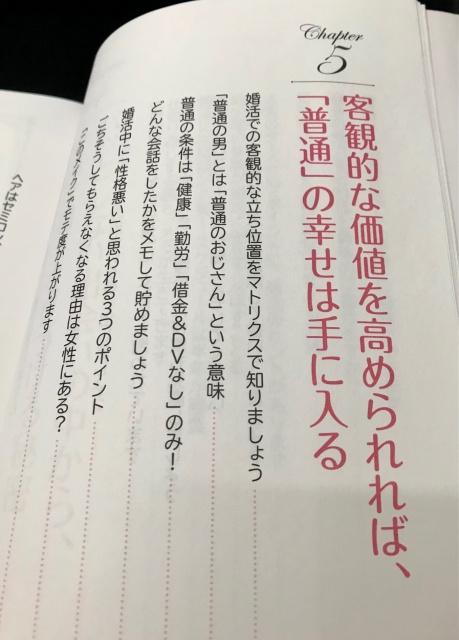 Chapter
5
客観的な価値を高められれば、
「普通」の幸せは手に入る
婚活での客観的な立ち位置をマトリクスで知りましょう
「普通の男」とは「普通のおじさん」という意味
普通の条件は「健康」「勤労」「借金&DVなし」のみ!
どんな会話をしたかをメモして貯めましょう
婚活中に「性格悪い」と思われる3つのポイント
ごちそうしてもらえなくなる理由は女性にある?
でモテ度が上がります
ヘアはセミロン